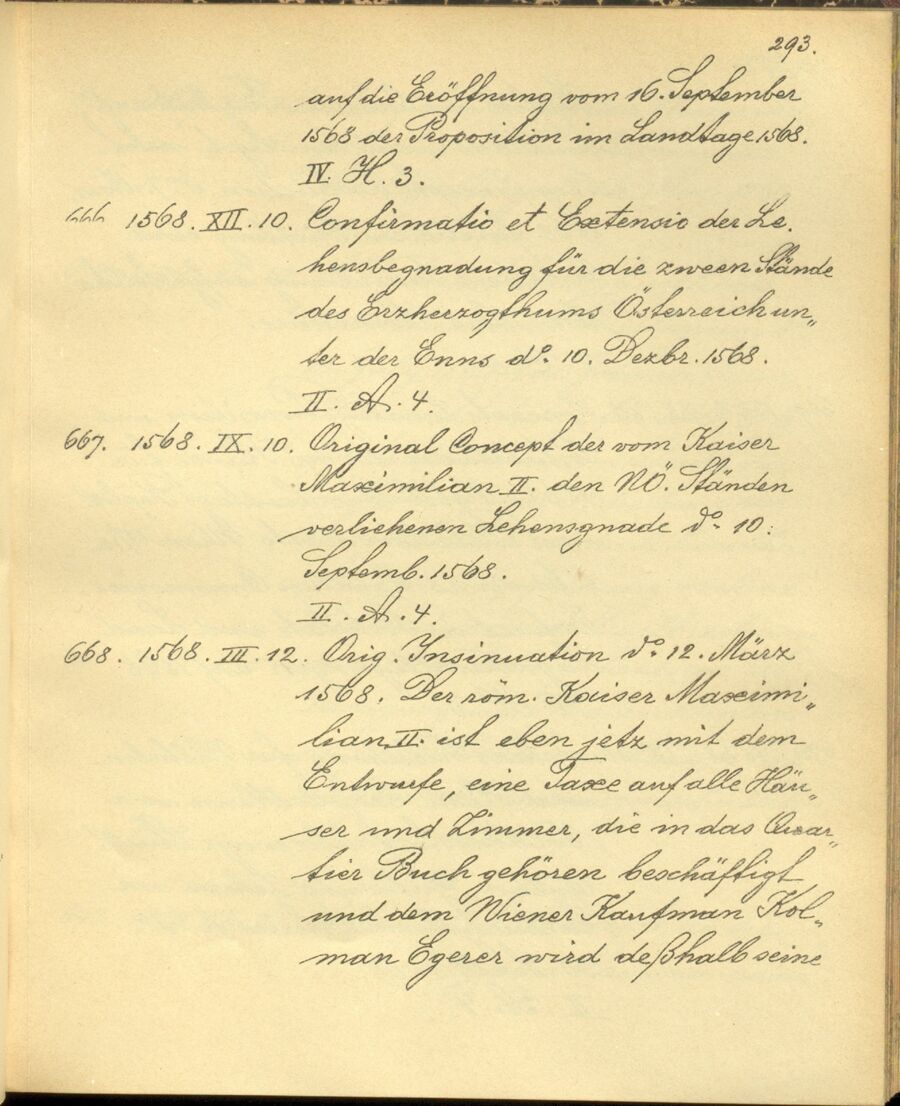 293.
auf die Eröffnung vom 16. September
1568 der Proposition im Landtage 1568.
IV. H. 3.
666 1568. XII. 10. Confirmatio et Extensio der Le,
hensbegnadung für die zween Stände
des Erzherzogthums Österreich un„
ter der Enns do. 10. Dezbr. 1568.
II. A. 4.
667. 1568. IX. 10. Original Concept der vom Kaiser
Maximilian II. den NÖ. Ständen
verliehenen Lehensgnade do. 10.
Septemb. 1568.
II. A. 4.
668. 1568. III. 12. Orig. Insinuation do. 12. März
1568. Der röm. Kaiser Maximi„
lian II. ist eben jetz mit dem
Entwurfe, eine Taxe auf alle Häu„
ser und Zimmer, die in das Quar„
tier Buch gehören beschäftigt
und dem Wiener Kaufman Kol„
man Egerer wird deßhalb seine